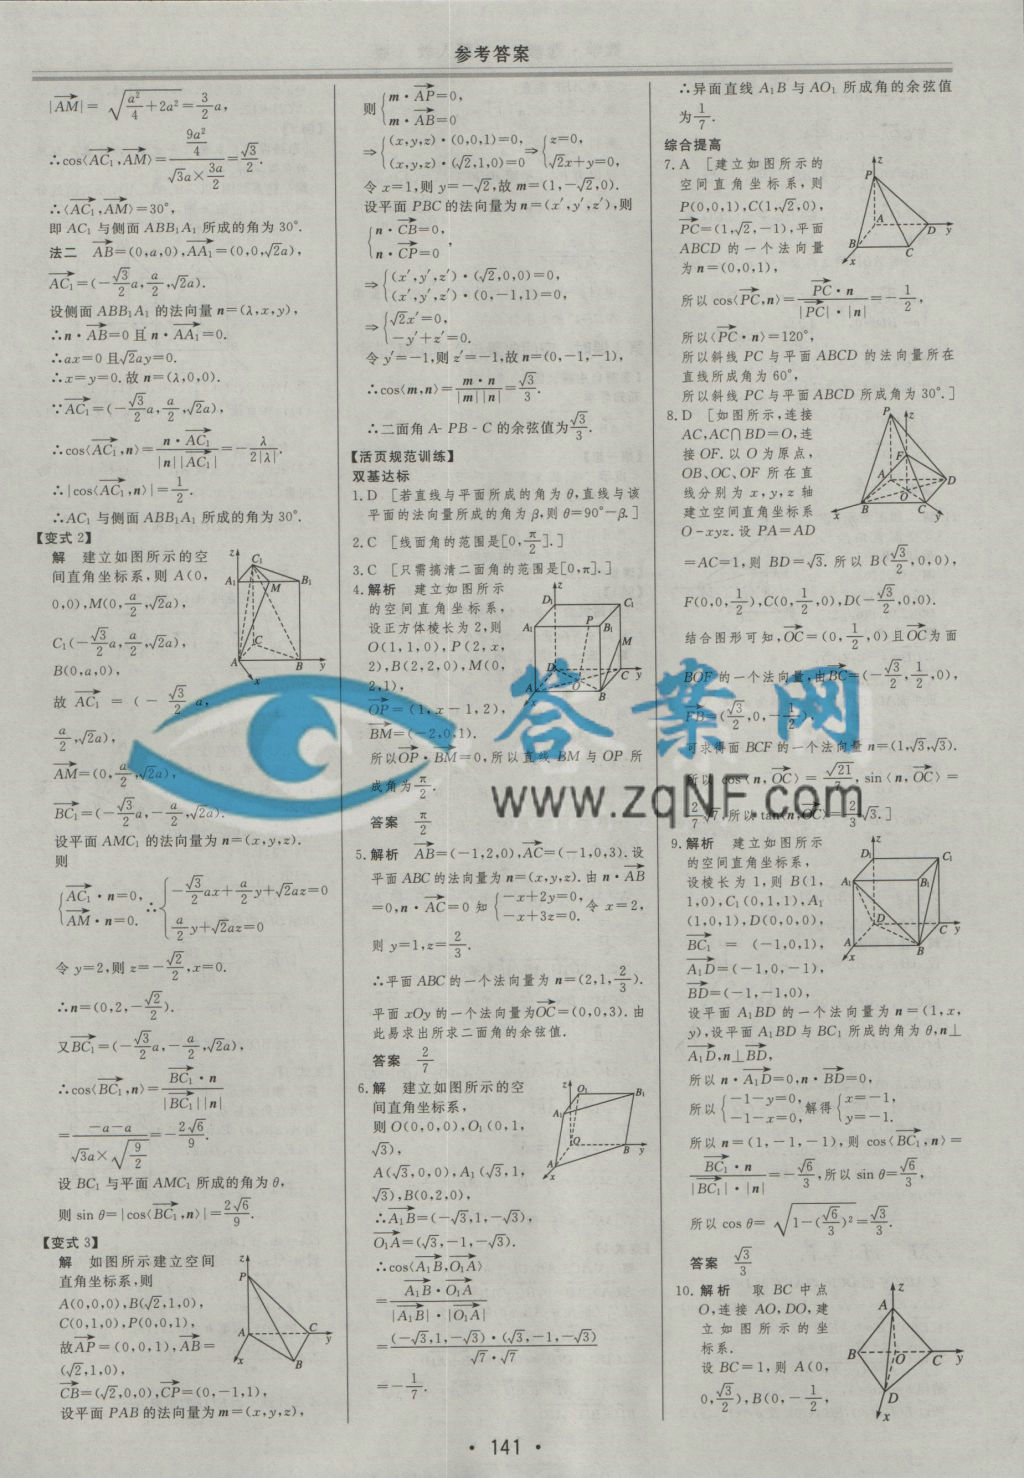 参考答案
|AM|=√(a²/4+2a²)=3/2a,
∴cos⟨AC₁,AM⟩=(9a²/4)/(√3a×3a/2)=√3/2.
∴⟨AC₁,AM⟩=30°,
即AC₁与侧面ABB₁A₁所成的角为30°.
法二 AB=(0,a,0),AA₁=(0,0,√2a),
AC₁=(-√3/2a,a/2,√2a).
设侧面ABB₁A₁的法向量n=(λ,x,y),
∴n·AB=0且n·AA₁=0.
∴ax=0且√2ay=0.
∴x=y=0.故n=(λ,0,0).
∵AC₁=(-√3/2a,a/2,√2a),
∴cos⟨AC₁,n⟩=n·AC₁/|n||AC₁|=-λ/2|λ|.
∴|cos⟨AC₁,n⟩|=1/2.
∴AC₁与侧面ABB₁A₁所成的角为30°.
【变式2】
解 建立如图所示的空
间直角坐标系,则A(0,
0,0),M(0,a/2,√2a),
C₁(-√3/2a,a/2,√2a),
B(0,a,0),
故AC₁=(-√3/2a,
a/2,√2a),
AM=(0,a/2,√2a),
BC₁=(-√3/2a,-a/2,√2a).
设平面AMC₁的法向量为n=(x,y,z).
则
{AC₁·n=0, AM·n=0. ∴{-√3/2ax+a/2y+√2az=0 a/2y+√2az=0
令y=2,则z=-√2/2,x=0.
∴n=(0,2,-√2/2).
又BC₁=(-√3/2a,-a/2,√2a),
∴cos⟨BC₁,n⟩=BC₁·n/|BC₁||n|
=(-a-a)/(√3a×√(9/2))=-2√6/9.
设BC₁与平面AMC₁所成的角为θ,
则sin θ=|cos⟨BC₁,n⟩|=2√6/9.
【变式3】
解 如图所示建立空间
直角坐标系,则
A(0,0,0),B(√2,1,0),
C(0,1,0),P(0,0,1),
故AP=(0,0,1),AB=
(√2,1,0),
CB=(√2,0,0),CP=(0,-1,1),
设平面PAB的法向量为m=(x,y,z),
则{m·AP=0, m·AB=0
⇒{(x,y,z)·(0,0,1)=0, (x,y,z)·(√2,1,0)=0⇒{z=0, √2x+y=0,
令x=1,则y=-√2,故m=(1,-√2,0).
设平面PBC的法向量为n=(x′,y′,z′),则
{n·CB=0, n·CP=0,
⇒{(x′,y′,z′)·(√2,0,0)=0, (x′,y′,z′)·(0,-1,1)=0,
⇒{√2x′=0, -y′+z′=0.
令y′=-1,则z′=-1,故n=(0,-1,-1),
∴cos⟨m,n⟩=m·n/|m||n|=√3/3.
∴二面角A-PB-C的余弦值为√3/3.
【活页规范训练】
双基达标
1.D [若直线与平面所成的角为θ,直线与该
平面的法向量所成的角为β,则θ=90°-β.]
2.C [线面角的范围是[0,π/2].]
3.C [只需搞清二面角的范围是[0,π].]
4.解析 建立如图所示
的空间直角坐标系,
设正方体棱长为2,则
O(1,1,0),P(2,x,
2),B(2,2,0),M(0,
2,1),
OP=(1,x-1,2),
BM=(-2,0,1).
所以OP·BM=0,所以直线BM与OP所
成角为π/2.
答案 π/2
5.解析 AB=(-1,2,0),AC=(-1,0,3).设
平面ABC的法向量为n=(x,y,z).由n·AB
=0,n·AC=0知{-x+2y=0, -x+3z=0.令x=2,
则y=1,z=2/3.
∴平面ABC的一个法向量为n=(2,1,2/3).
平面xOy的一个法向量为OC=(0,0,3).由
此易求出所求二面角的余弦值.
答案 2/7
6.解 建立如图所示的空
间直角坐标系,
则O(0,0,0),O₁(0,1,
√3),
A(√3,0,0),A₁(√3,1,
√3),B(0,2,0),
∴A₁B=(-√3,1,-√3),
O₁A=(√3,-1,-√3).
∴cos⟨A₁B,O₁A⟩
=A₁B·O₁A/|A₁B|·|O₁A|
=(-√3,1,-√3)·(√3,-1,-√3)/√7·√7
=-1/7.
∴异面直线A₁B与AO₁所成角的余弦值
为1/7.
综合提高
7.A [建立如图所示的
空间直角坐标系,则
P(0,0,1),C(1,√2,0),
PC=(1,√2,-1),平面
ABCD的一个法向量
为n=(0,0,1),
所以cos⟨PC,n⟩=PC·n/|PC|·|n|=-1/2,
所以⟨PC·n⟩=120°,
所以斜线PC与平面ABCD的法向量所在
直线所成角为60°,
所以斜线PC与平面ABCD所成角为30°.]
8.D [如图所示,连接
AC,AC∩BD=O,连
接OF.以O为原点,
OB、OC、OF所在直
线分别为x,y,z轴
建立空间直角坐标系
O-xyz.设PA=AD
=AC=1,则BD=√3.所以B(√3/2,0,0),
F(0,0,1/2),C(0,1/2,0),D(-√3/2,0,0).
结合图形可知,OC=(0,1/2,0)且OC为面
BOF的一个法向量,由BC=(-√3/2,1/2,0),
FB=(√3/2,0,-1/2),
可求得面BCF的一个法向量n=(1,√3,√3).
所以cos⟨n,OC⟩=√21/7,sin⟨n,OC⟩=
2/7√7,所以tan⟨n,OC⟩=2/3√3.]
9.解析 建立如图所示
的空间直角坐标系,
设棱长为1,则B(1,
1,0),C₁(0,1,1),A₁
(1,0,1),D(0,0,0),
BC₁=(-1,0,1),
A₁D=(-1,0,-1),
BD=(-1,-1,0),
设平面A₁BD的一个法向量为n=(1,x,
y),设平面A₁BD与BC₁所成的角为θ,n⊥
A₁D,n⊥BD,
所以n·A₁D=0,n·BD=0,
所以{-1-y=0, -1-x=0,解得{x=-1, y=-1.
所以n=(1,-1,-1),则cos⟨BC₁,n⟩=
BC₁·n/|BC₁|·|n|=-√6/3,所以sin θ=√6/3,
所以cos θ=√(1-(√6/3)²)=√3/3.
答案 √3/3
10.解析 取BC中点
O,连接AO,DO,建
立如图所示的坐
标系.
设BC=1,则A(0,
0,√3/2),B(0,-1/2,
答案网
www.zqNF.com
·141·